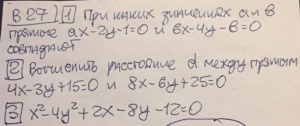 В 27) 1 При каких значениях a и в
прямые ax-2y-1=0 и вx-4y-6=0
совпадают
2 Вычислить расстояние d между прямыми
4x-3y+15=0 и 8x-6y+25=0
3 x²-4y²+2x-8y-12=0